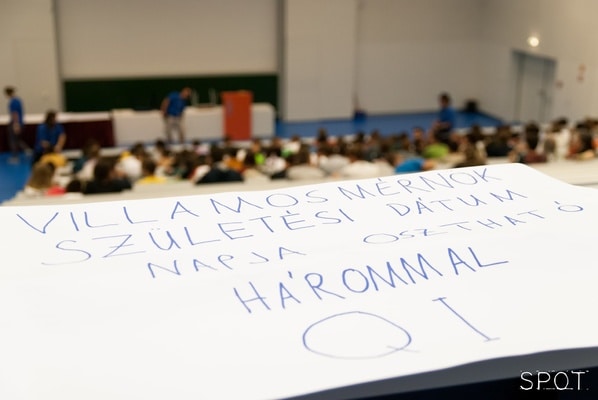 VILLAMOSMÉRNÖK
SZÜLETÉSI DÁTUM
NAPJA OSZTHATÓ
HÁROMMAL
QI
SPOT